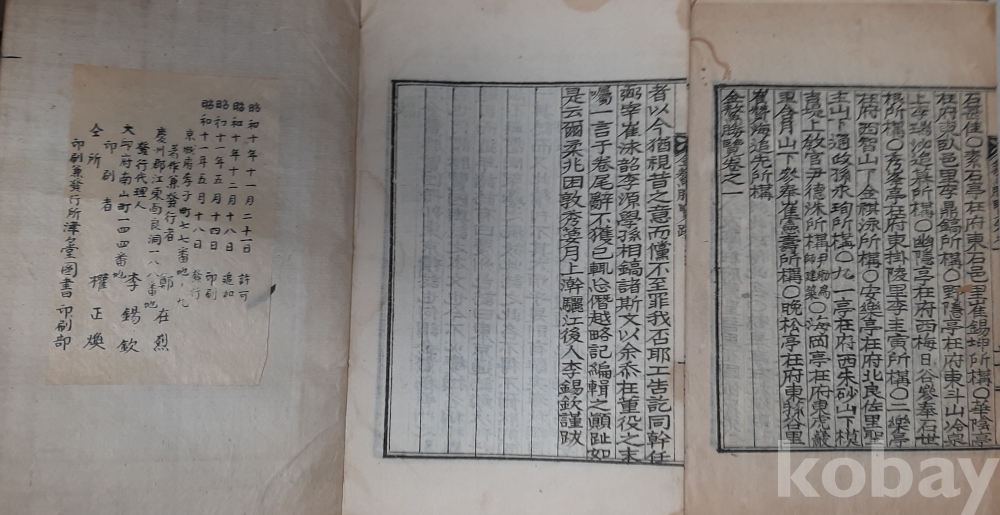 石甚佳〇素石亭在府東石邑里崔錫坤所構〇華陰亭
在府東臥邑里李鼎鎬所構〇野隱亭在府東斗山冷泉
上所構〇幽隱亭在府西梅日谷參奉石世
根所構〇秀峯亭在府東掛陵里李圭寅所構〇二樂亭
在府西智山下金祺泳所構〇安樂亭在府北良佐里聖
主山下通政孫永珣所構〇九一亭在府西朱砂山下模
吉現敎官尹德洙所構〇海岡亭在府東虎巖
里含月山下參奉崔憲壽所構〇晩松亭在府東谷里
崔贊海追先所構
金鰲勝覽卷之一
者以今猶視昔之意而儻不至罪我否耶工告訖同幹任
弼宰崔泳韶李源學孫相鎬諸斯文以余忝在重役之末
囑一言于卷尾辭不獲已輒忘僭越略記編輯之顚趾如
是云爾柔兆困敦秀葽月上澣驪江後人李錫欽謹跋
昭和十年十一月二十一日 許可
昭和十年十二月十八日 追加
昭和十一年五月十四日 印刷
昭和十一年五月十八日 發行
京城府孝子町七七番地ノ九
著作兼發行者 鄭在烈
慶州郡江東面良洞一八八番地
發行代理人 李錫欽
大邱府南山町一四四番地
印刷者 權正煥
仝所
印刷兼發行所澤堂圖書印刷部
kobay